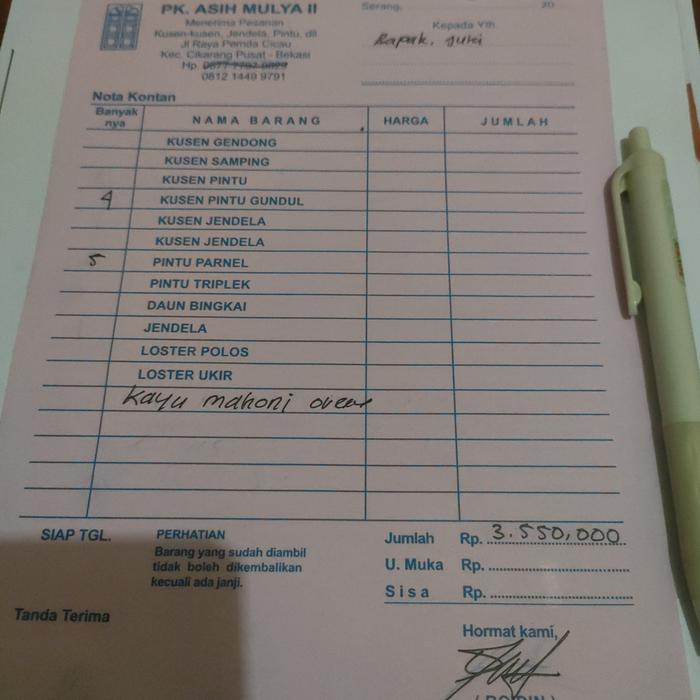 PK. ASIH MULYA II
Menerima Pesanan
Kusen-kusen, Jendela, Pintu, dll
Jl Raya Pemda Cicau
Kec. Cikarang Pusat - Bekasi
Hp.
0812 1449 9791
Serang, 20
Kepada Yth.
Bapak.
Nota Kontan
Banyak nya NAMA BARANG HARGA JUMLAH
KUSEN GENDONG
KUSEN SAMPING
KUSEN PINTU
4 KUSEN PINTU GUNDUL
KUSEN JENDELA
KUSEN JENDELA
5 PINTU PARNEL
PINTU TRIPLEK
DAUN BINGKAI
JENDELA
LOSTER POLOS
LOSTER UKIR
Kayu mahoni
SIAP TGL.
PERHATIAN
Barang yang sudah diambil
tidak boleh dikembalikan
kecuali ada janji.
Jumlah Rp. 3.550,000
U. Muka Rp.
Sisa Rp.
Tanda Terima
Hormat kami,